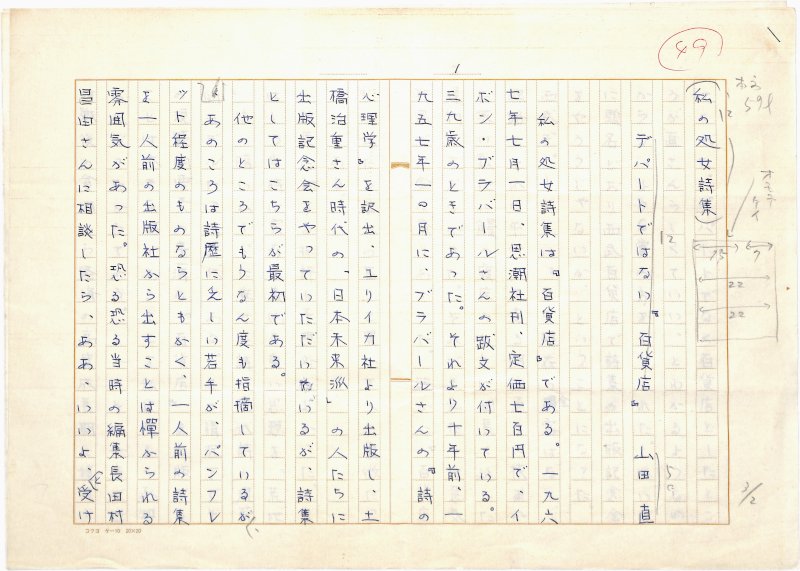 49
1
(私の処女詩集)
デパートではない『百貨店』 山田 直
私の処女詩集は『百貨店』である。一九六
七年七月一日、思潮社刊、定価七百円で、イ
ボン・ブラバールさんの跋文が付いている。
三九歳のときであった。それより十年前、一
九五七年一〇月に、ブラバールさんの『詩の
心理学』を訳出、ユリイカ社より出版し、土
橋治重さん時代の、「日本未来派」の人たちに
出版記念会をやっていただいているが、詩集
としてはこちらが最初である。
他のところでもうなん度も指摘しているが、
あのころは詩歴に乏しい若手が、パンフレ
ット程度のものならともかく、一人前の詩集
を一人前の出版社から出すことは憚かられる
雰囲気があった。恐る恐る当時の編集長田村
昌由さんに相談したら、ああ、いいよ、受け
12
12
15
7
22
22
3/2
コクヨ ケ-10 20×20